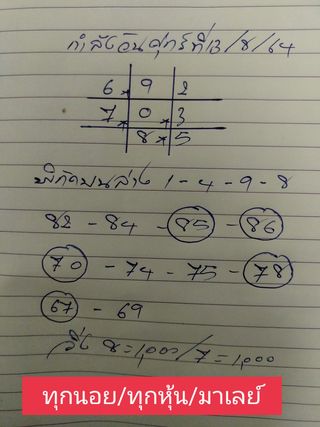 กำลังวันศุกร์ที่ 13/8/64
6 9 2
7 0 3
8 5
พิกัดบนล่าง 1-4-9-8
82 - 84 - 85 - 86
70 - 74 - 75 - 78
67 - 69
วิ่ง 8=1,000/7=1,000
ทุกนอย/ทุกหุ้น/มาเลย์